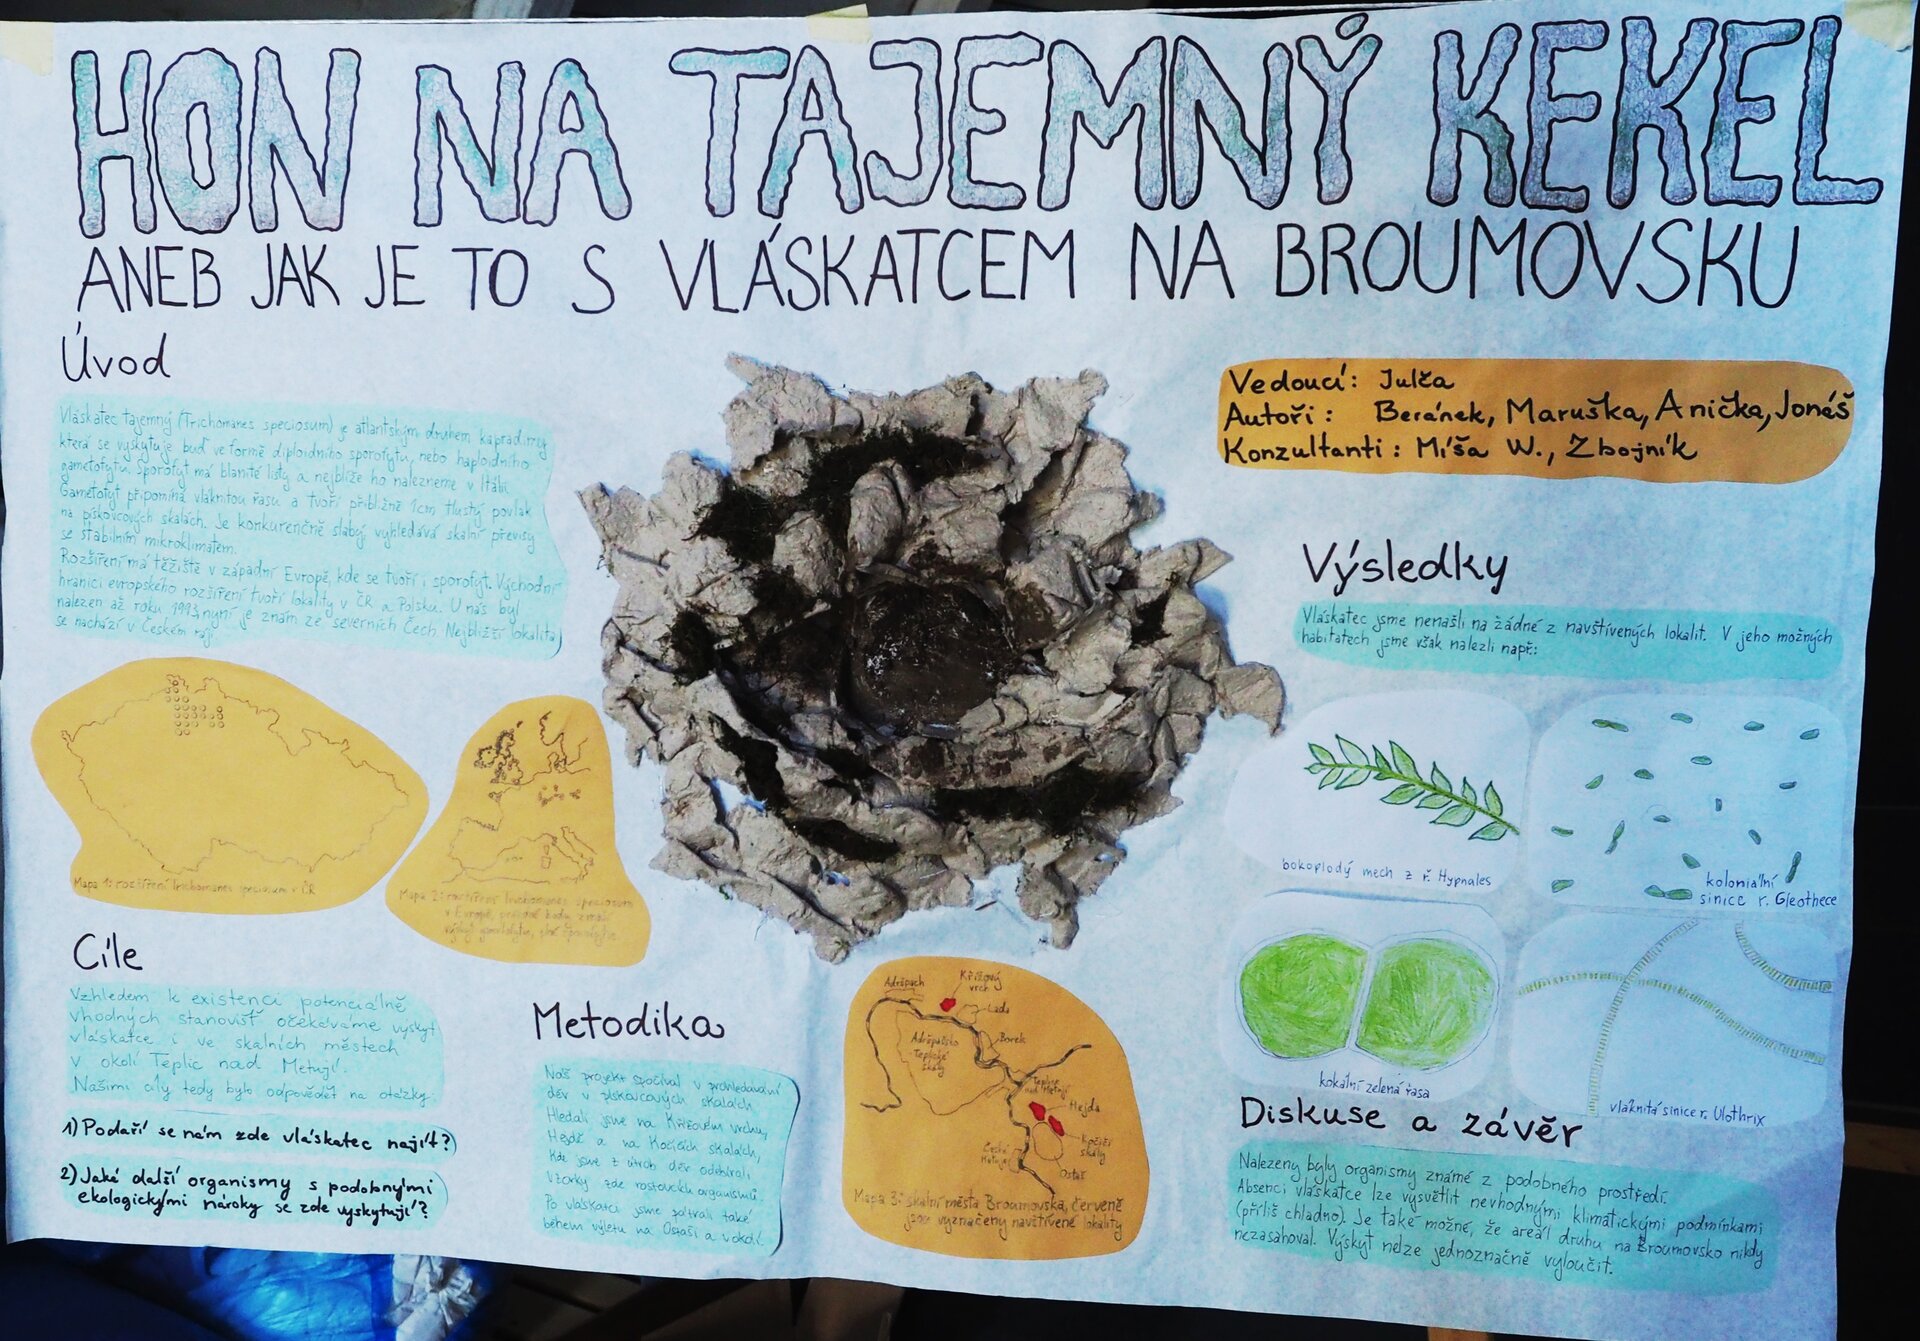 HON NA TAJEMNÝ KEKEL
ANEB JAK JE TO S VLÁSKATCEM NA BROUMOVSKU
Úvod
Vláskatec tajemný (Trichomanes speciosum) je atlantským druhem kapradiny
která se vyskytuje buď ve formě diploidního sporofytu, nebo haploidního
gametofytu. Sporofyt má blanité listy a nejblíže ho nalezneme v Itálii.
Gametofyt připomíná vláknitou řasu a tvoří přibližně 1cm tlustý povlak
na pískovcových skalách. Je konkurenčně slabý, vyhledává skalní převisy
se stabilním mikroklimatem.
Rozšíření má těžiště v západní Evropě, kde se tvoří i sporofyt. Východní
hranici evropského rozšíření tvoří lokality v ČR a Polsku. U nás byl
nalezen až roku 1993, nyní je znám ze severních Čech. Nejbližší lokalita
se nachází v Českém ráji.
Mapa 1: rozšíření Trichomanes speciosum v ČR
Mapa 2: rozšíření Trichomanes speciosum
v Evropě, prázdné body značí
výskyt gametofytu, plné sporofytu
Cíle
Vzhledem k existenci potenciálně
vhodných stanovišť očekáváme výskyt
vláskatce i ve skalních městech
v okolí Teplic nad Metují.
Našimi cíly tedy bylo odpovědět na otázky:
1) Podaří se nám zde vláskatec najít?
2) Jaké další organismy s podobnými
ekologickými nároky se zde vyskytují?
Metodika
Náš projekt spočíval v prohledávání
děr v pískovcových skalách.
Hledali jsme na Křížovém vrchu,
Hejdě a na Kočičích skalách,
kde jsme z útrob děr odebírali
vzorky zde rostoucích organismů.
Po vláskatci jsme pátrali také
během výletu na Ostaši a v okolí.
Adršpach
Křížový
vrch
Lada
Borek
Adršpašsko
Teplické
skály
Teplice
nad Metují
Hejda
Kočičí
skály
Ostaš
Česká
Metuje
Mapa 3: skalní města Broumovska, červeně
jsou vyznačeny navštívené lokality
Vedoucí: Julča
Autoři: Beránek, Maruška, Anička, Jonáš
Konzultanti: Míša W., Zbojník
Výsledky
Vláskatec jsme nenašli na žádné z navštívených lokalit. V jeho možných
habitatech jsme však nalezli např.:
bokoplodý mech z ř. Hypnales
koloniální
sinice r. Gleothece
kokální zelená řasa
vláknitá sinice r. Ulothrix
Diskuse a závěr
Nalezeny byly organismy známé z podobného prostředí.
Absenci vláskatce lze vysvětlit nevhodnými klimatickými podmínkami
(příliš chladno). Je také možné, že areál druhu na Broumovsko nikdy
nezasahoval. Výskyt nelze jednoznačně vyloučit.